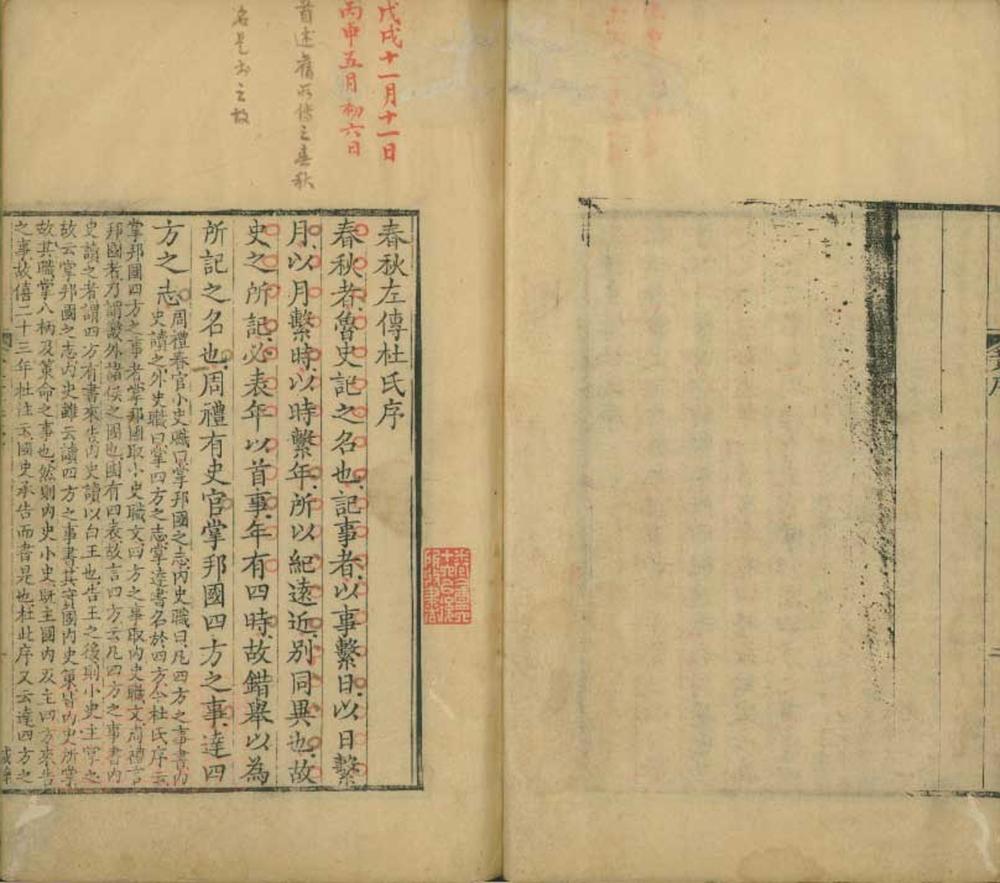 戊戌十一月十一日
丙申五月初六日
首述舊所傳之春秋
名是書之故
春秋左傳杜氏序
春秋者魯史記之名也記事者以事繫日以日繫
月以月繫時以時繫年所以紀遠近別同異也故
史之所記必表年以首事年有四時故錯舉以為
所記之名也周禮有史官掌邦國四方之事達四
方之志
周禮春官小史職曰掌邦國之志內史職曰凡四方之事書內
史讀之外史職曰掌四方之志掌達書名於四方今杜氏序云
掌邦國四方之事者掌邦國取小史職文四方之事取內史職文周禮言
邦國者乃謂畿外諸侯之國也國有四表故言四方云凡四方之事書內
史讀之者謂四方有書來告內史讀以白王也告王之後則小史主掌之
故云掌邦國之志內史雖云讀四方之事書其實國內史策皆內史所掌
故其職掌八柄及策命之事也然則內史小史既主國內及主四方來告
之事故僖二十三年杜注云國史承告而書是也杜此序又云達四方之
序